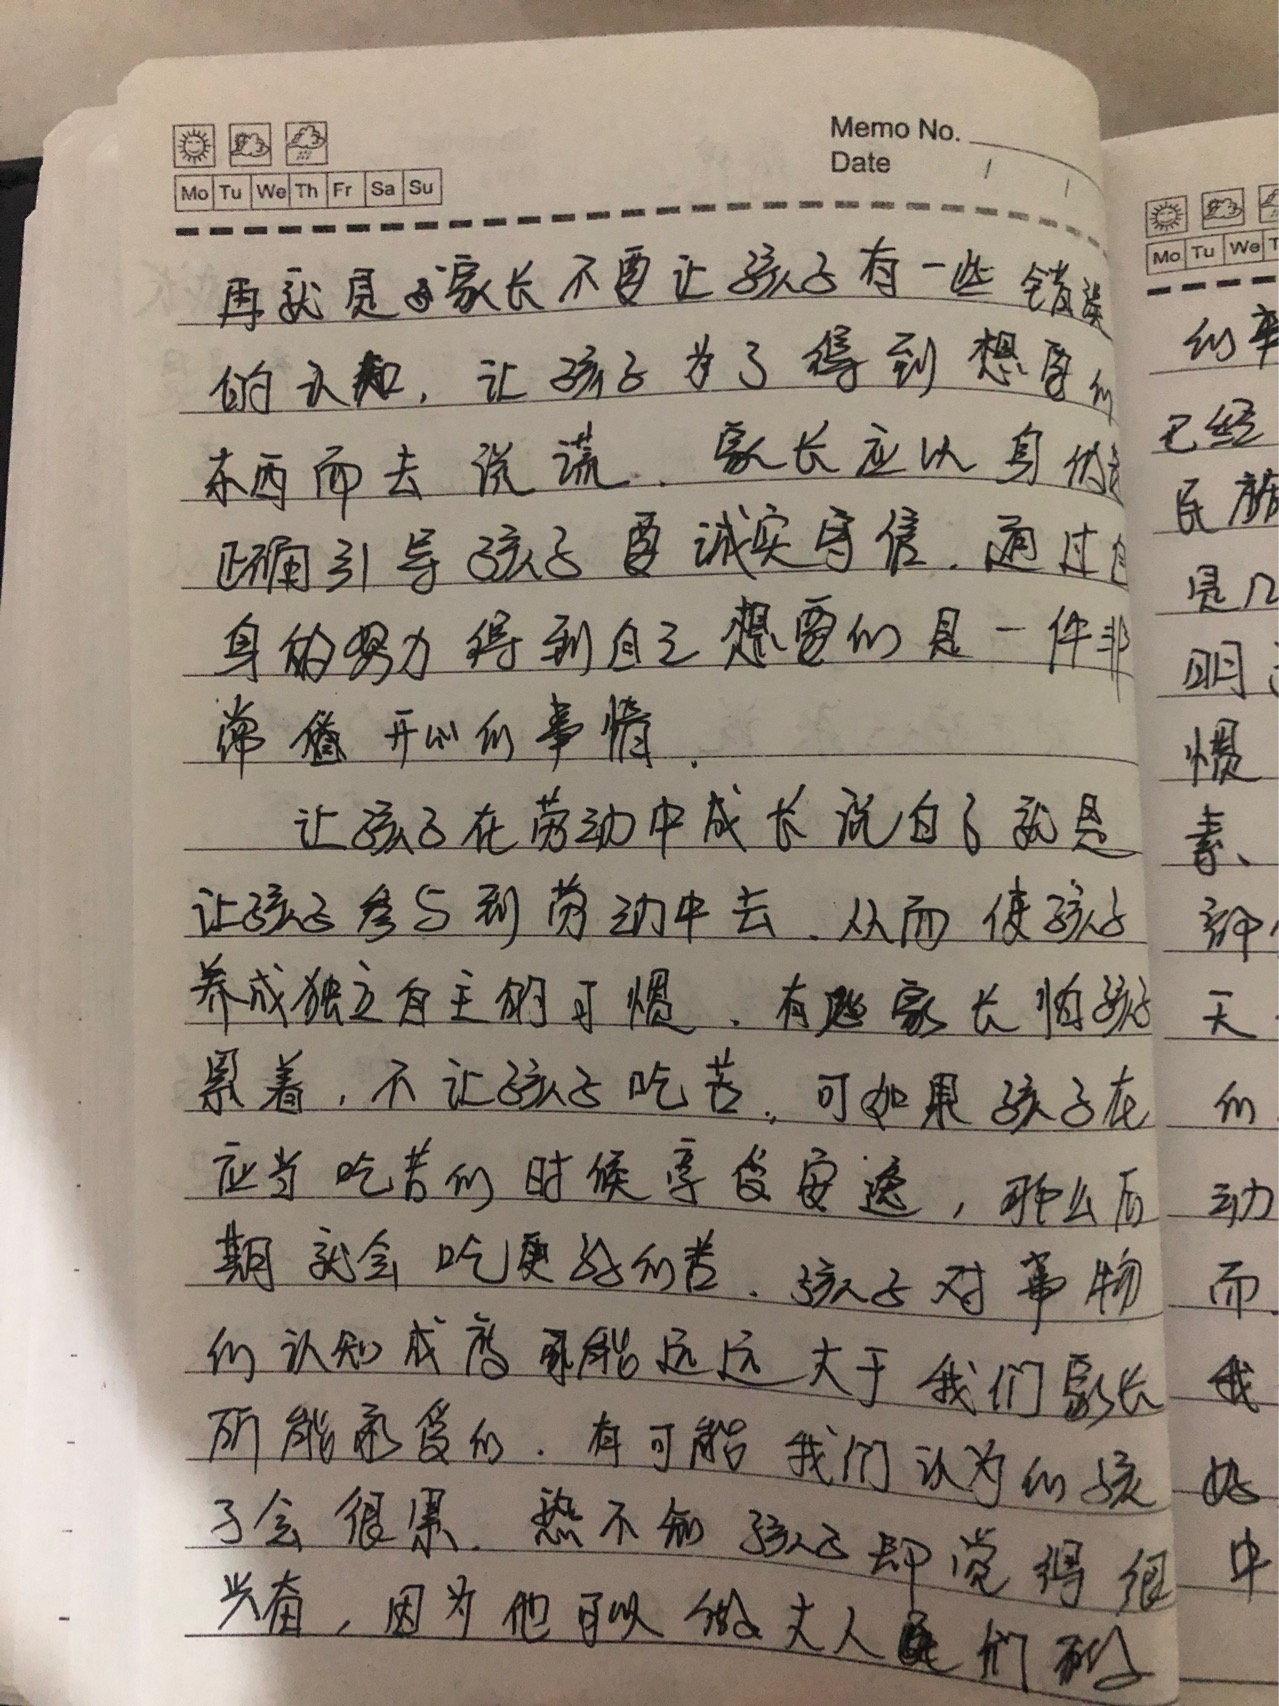 Memo No.
Date / /
Mo Tu We Th Fr Sa Su
再就是家长不要让孩子有一些错误
的认知,让孩子为了得到想要的
东西而去说谎.家长应以身作则
正确引导孩子要诚实守信.通过自
身的努力得到自己想要的是一件非
常值开心的事情.
让孩子在劳动中成长说白了就是
让孩子参与到劳动中去.从而使孩子
养成独立自主的习惯.有些家长怕孩子
累着,不让孩子吃苦.可如果孩子在
应当吃苦的时候享受安逸,那么后
期就会吃更多的苦.孩子对事物
的认知成度可能远远大于我们家长
所能承受的.有可能我们认为的孩
子会很累.恐不知孩子却觉得很
兴奋,因为他可以做大人们
Mo Tu We T
们
已经
民族
是几
明
惯
素、
天
的
动
而
我
好
中